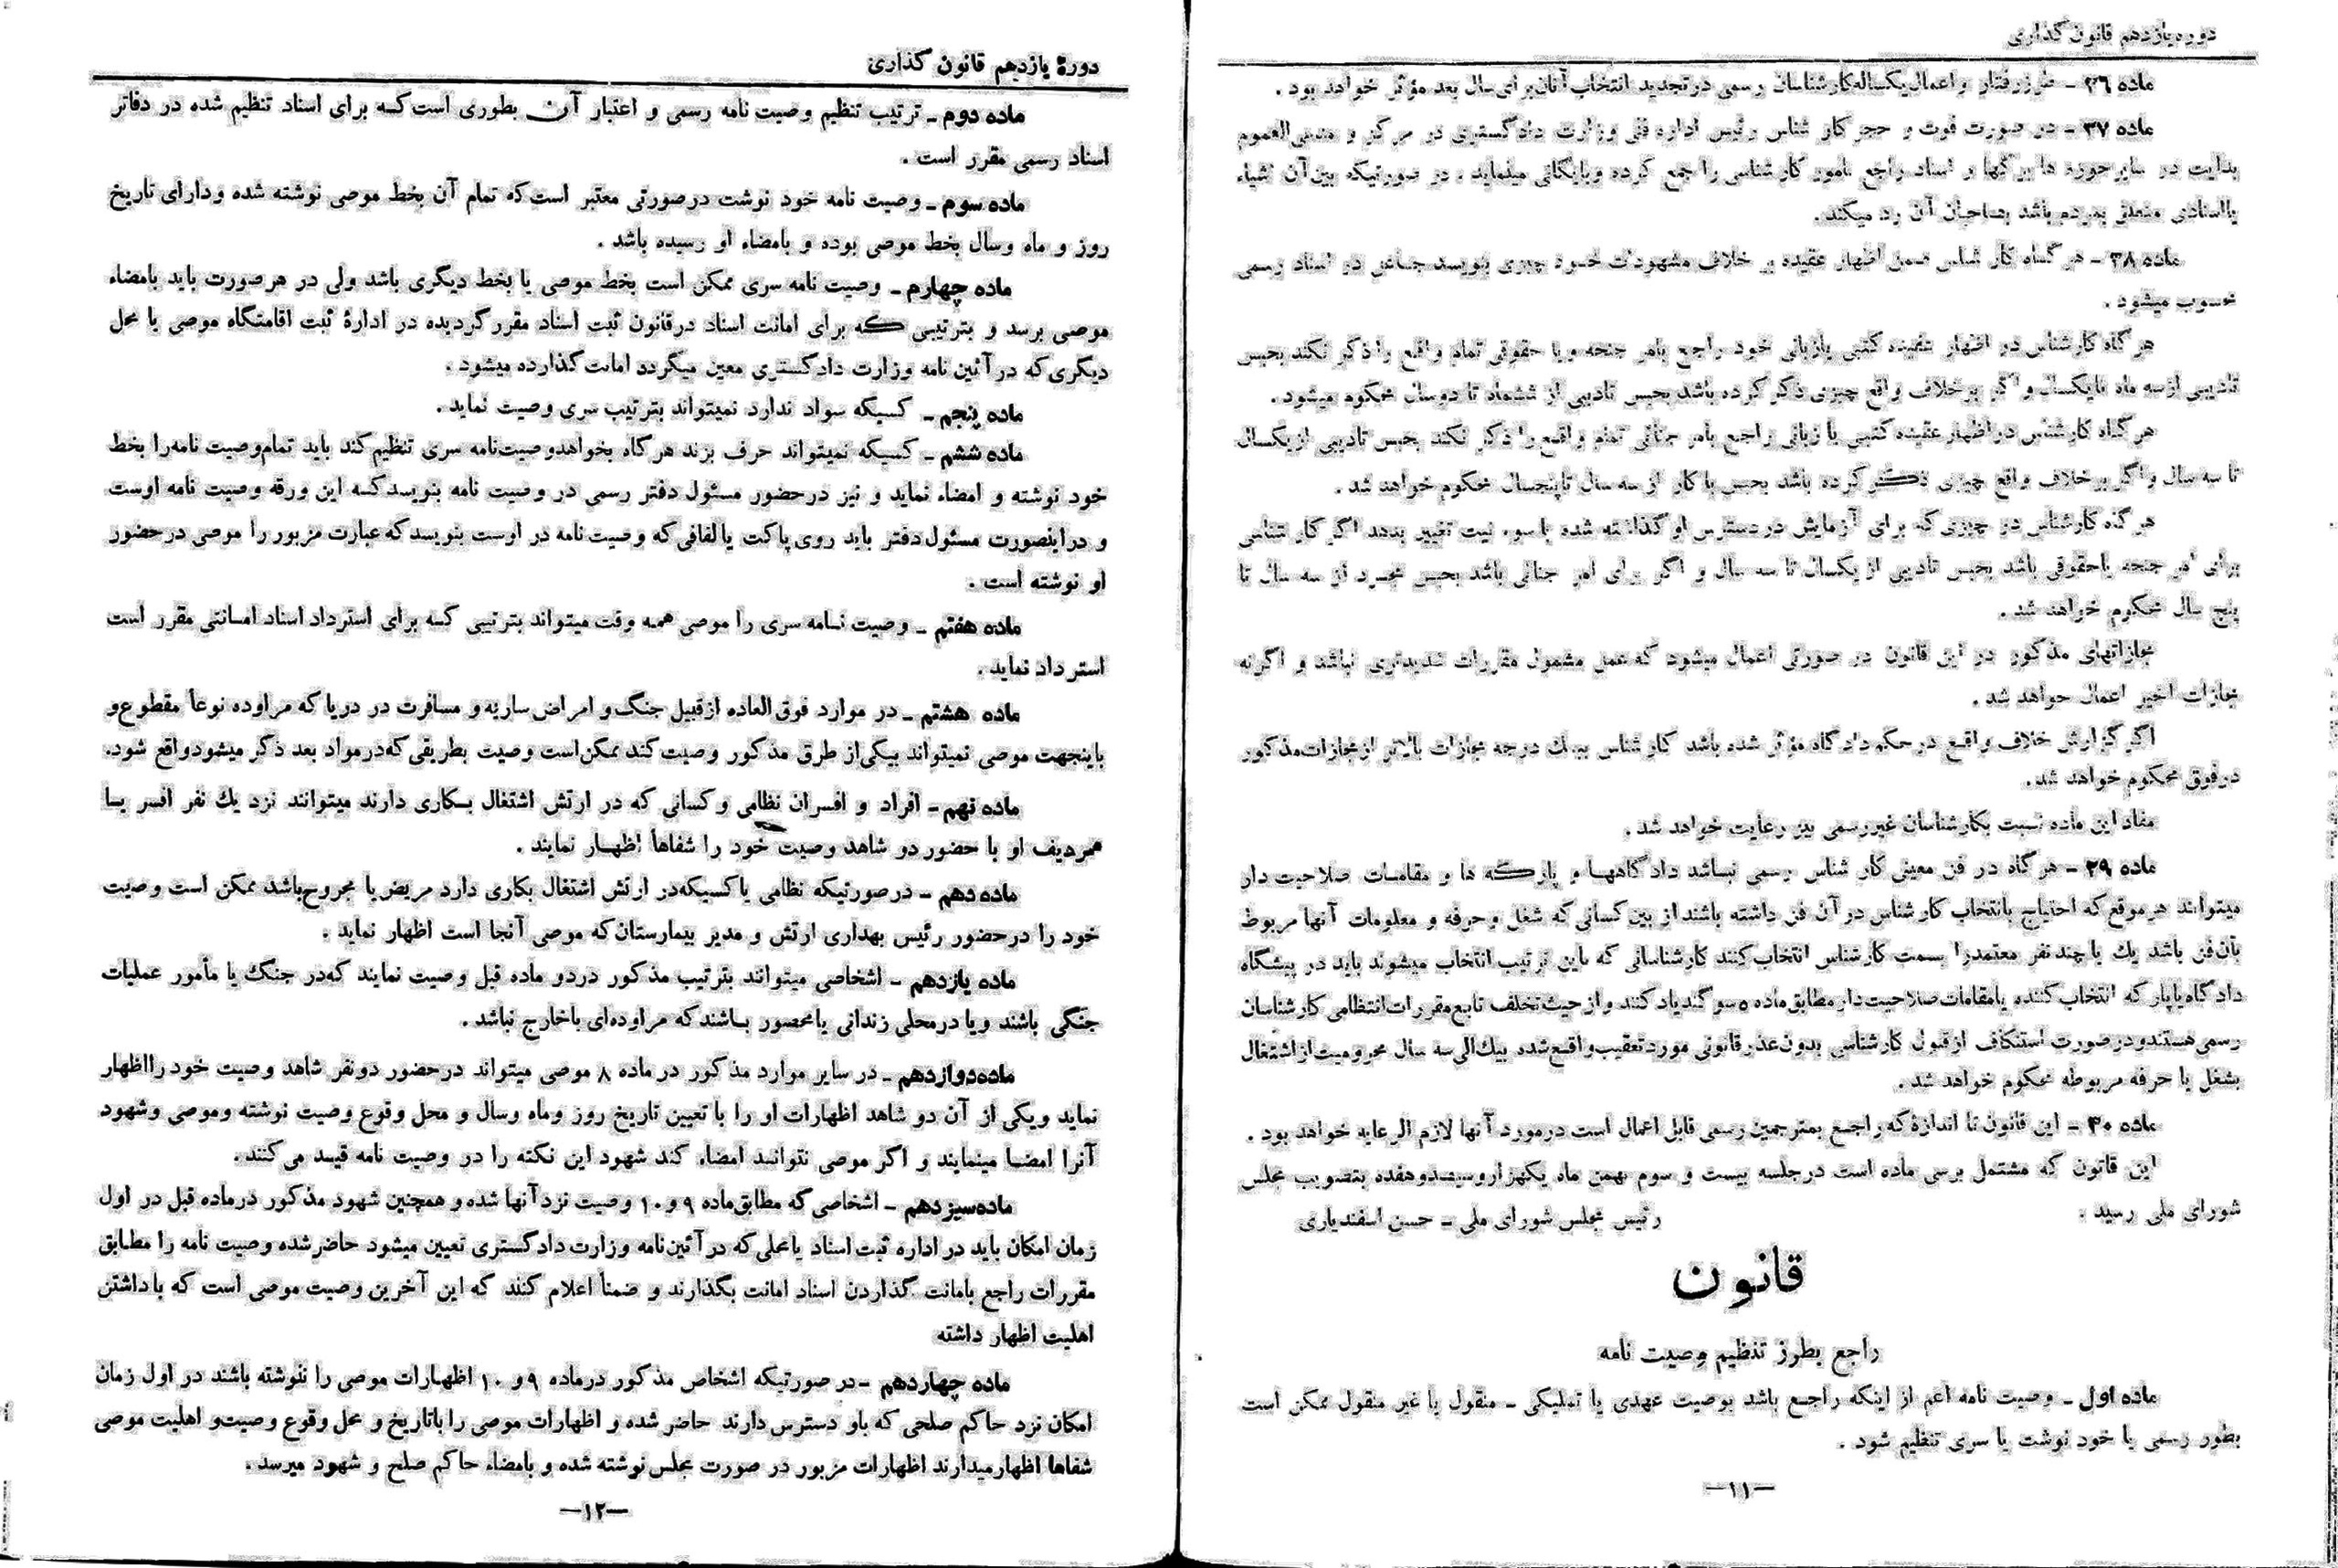 دوره یازدهم قانون گذاری
ماده ۲۶ – طرز رفتار و اعمال یکساله کارشناسان رسمی در تجدید انتخاب آنان برای سال بعد مؤثر خواهد بود .
ماده ۲۷ – در صورت فوت و حجر کار شناس رئیس اداره فنی وزارت دادگستری در مرکز و مدعی العموم
بدایت در سایر حوزه ها برگها و اسناد راجع بامور کارشناسی را جمع کرده و بایگانی مینماید . در صورتیکه بین آن اشیاء
یا اسنادی متعلق بمردم باشد بصاحبان آن رد میکند .
ماده ۲۸ – هر گاه کار شناس ضمن اظهار عقیده بر خلاف مشهودات خود چیزی بنویسد جاعل در اسناد رسمی
محسوب میشود .
هر گاه کارشناس در اظهار عقیده کتبی یا زبانی خود راجع بامر جنحه و یا حقوقی تمام واقع را ذکر نکند بحبس
تادیبی از سه ماه تا یکسال و اگر بر خلاف واقع چیزی ذکر کرده باشد بحبس تادیبی از ششماه تا دوسال محکوم میشود .
هر گاه کارشناس در اظهار عقیده کتبی یا زبانی راجع بامر جنائی تمام واقع را ذکر نکند بحبس تادیبی از یکسال
تا سه سال و اگر بر خلاف واقع چیزی ذکر کرده باشد بحبس با کار از سه سال تا پنجسال محکوم خواهد شد .
هر گاه کارشناس در چیزی که برای آزمایش در دسترس او گذاشته شده با سوء نیت تغییر بدهد اگر کار شناس
برای امر جنحه یا حقوقی باشد بحبس تادیبی از یکسال تا سه سال و اگر برای امر جنائی باشد بحبس مجرد از سه سال تا
پنج سال محکوم خواهد شد .
مجازاتهای مذکور در این قانون در صورتی اعمال میشود که عمل مشمول مقررات شدیدتری نباشد و اگرنه
مجازات اخیر اعمال خواهد شد .
اگر گزارش خلاف واقع در حکم دادگاه مؤثر شده باشد کارشناس بیك درجه مجازات بالاتر از مجازات مذکور
در فوق محکوم خواهد شد .
مفاد این ماده نسبت بکارشناسان غیررسمی نیز رعایت خواهد شد .
ماده ۲۹ – هر گاه در فن معینی کار شناس رسمی نباشد دادگاهها و پارکه ها و مقامات صلاحیت دار
میتوانند هر موقع که احتیاج بانتخاب کارشناس در آن فن داشته باشند از بین کسانی که شغل و حرفه و معلومات آنها مربوط
بآن فن باشد یك یا چند نفر معتمدرا بسمت کارشناس انتخاب کنند کارشناسانی که باین ترتیب انتخاب میشوند باید در پیشگاه
دادگاه یا پارکه انتخاب کننده یا مقامات صلاحیت دار مطابق ماده ۵ سوگند یاد کنند و از حیث تخلف تابع مقررات انتظامی کارشناسان
رسمی هستند و در صورت استنکاف از قبول کارشناسی بدون عذر قانونی مورد تعقیب واقع شده بیك الی سه سال محرومیت از اشتغال
بشغل یا حرفه مربوطه محکوم خواهد شد .
ماده ۳۰ – این قانون تا اندازۀ که راجع بمترجمین رسمی قابل اعمال است در مورد آنها لازم الرعایه خواهد بود .
این قانون که مشتمل برسی ماده است در جلسه بیست و سوم بهمن ماه یکهزار و سیصد و هفده بتصویب مجلس
شورای ملی رسید .
رئیس مجلس شورای ملی – حسن اسفندیاری
قانون
راجع بطرز تنظیم وصیت نامه
ماده اول – وصیت نامه اعم از اینکه راجع باشد بوصیت عهدی یا تملیکی – منقول یا غیر منقول ممکن است
بطور رسمی یا خود نوشت یا سری تنظیم شود .
–۱۱–
دورۀ یازدهم قانون گذاری
ماده دوم – ترتیب تنظیم وصیت نامه رسمی و اعتبار آن بطوری است که برای اسناد تنظیم شده در دفاتر
اسناد رسمی مقرر است .
ماده سوم – وصیت نامه خود نوشت در صورتی معتبر است که تمام آن بخط موصی نوشته شده و دارای تاریخ
روز و ماه و سال بخط موصی بوده و بامضاء او رسیده باشد .
ماده چهارم – وصیت نامه سری ممکن است بخط موصی یا بخط دیگری باشد ولی در هر صورت باید بامضاء
موصی برسد و بترتیبی که برای امانت اسناد در قانون ثبت اسناد مقرر گردیده در ادارۀ ثبت اقامتگاه موصی یا محل
دیگری که در آئین نامه وزارت دادگستری معین میگردد امانت گذارده میشود .
ماده پنجم – کسیکه سواد ندارد نمیتواند بترتیب سری وصیت نماید .
ماده ششم – کسیکه نمیتواند حرف بزند هر گاه بخواهد وصیت نامه سری تنظیم کند باید تمام وصیت نامه را بخط
خود نوشته و امضاء نماید و نیز در حضور مسئول دفتر رسمی در وصیت نامه بنویسد که این ورقه وصیت نامه اوست
و در اینصورت مسئول دفتر باید روی پاکت یا لفافی که وصیت نامه در اوست بنویسد که عبارت مزبور را موصی در حضور
او نوشته است .
ماده هفتم – وصیت نامه سری را موصی همه وقت میتواند بترتیبی که برای استرداد اسناد امانتی مقرر است
استرداد نماید .
ماده هشتم – در موارد فوق العاده از قبیل جنگ و امراض ساریه و مسافرت در دریا که مراوده نوعاً مقطوع و
باینجهت موصی نمیتواند بیکی از طرق مذکور وصیت کند ممکن است وصیت بطریقی که در مواد بعد ذکر میشود واقع شود .
ماده نهم – افراد و افسران نظامی و کسانی که در ارتش اشتغال بکاری دارند میتوانند نزد یك نفر افسر یا
همردیف او با حضور دو شاهد وصیت خود را شفاهاً اظهار نمایند .
ماده دهم – در صورتیکه نظامی یا کسیکه در ارتش اشتغال بکاری دارد مریض یا مجروح باشد ممکن است وصیت
خود را در حضور رئیس بهداری ارتش و مدیر بیمارستان که موصی آنجا است اظهار نماید .
ماده یازدهم – اشخاصی میتوانند بترتیب مذکور در دو ماده قبل وصیت نمایند که در جنگ یا مأمور عملیات
جنگی باشند و یا در محلی زندانی یا محصور باشند که مراوده‌ای با خارج نباشد .
ماده دوازدهم – در سایر موارد مذکور در ماده ۸ موصی میتواند در حضور دو نفر شاهد وصیت خود را اظهار
نماید و یکی از آن دو شاهد اظهارات او را با تعیین تاریخ روز و ماه و سال و محل وقوع وصیت نوشته و موصی و شهود
آنرا امضا مینمایند و اگر موصی نتواند امضاء کند شهود این نکته را در وصیت نامه قید می کنند .
ماده سیزدهم – اشخاصی که مطابق ماده ۹ و ۱۰ وصیت نزد آنها شده و همچنین شهود مذکور در ماده قبل در اول
زمان امکان باید در اداره ثبت اسناد یا محلی که در آئین نامه وزارت دادگستری تعیین میشود حاضر شده وصیت نامه را مطابق
مقررات راجع بامانت گذاردن اسناد امانت بگذارند و ضمناً اعلام کنند که این آخرین وصیت موصی است که با داشتن
اهلیت اظهار داشته
ماده چهاردهم – در صورتیکه اشخاص مذکور در ماده ۹ و ۱۰ اظهارات موصی را ننوشته باشند در اول زمان
امکان نزد حاکم صلحی که باو دسترس دارند حاضر شده و اظهارات موصی را با تاریخ و محل وقوع وصیت و اهلیت موصی
شفاها اظهار میدارند اظهارات مزبور در صورت مجلس نوشته شده و بامضاء حاکم صلح و شهود میرسد .
–۱۲–